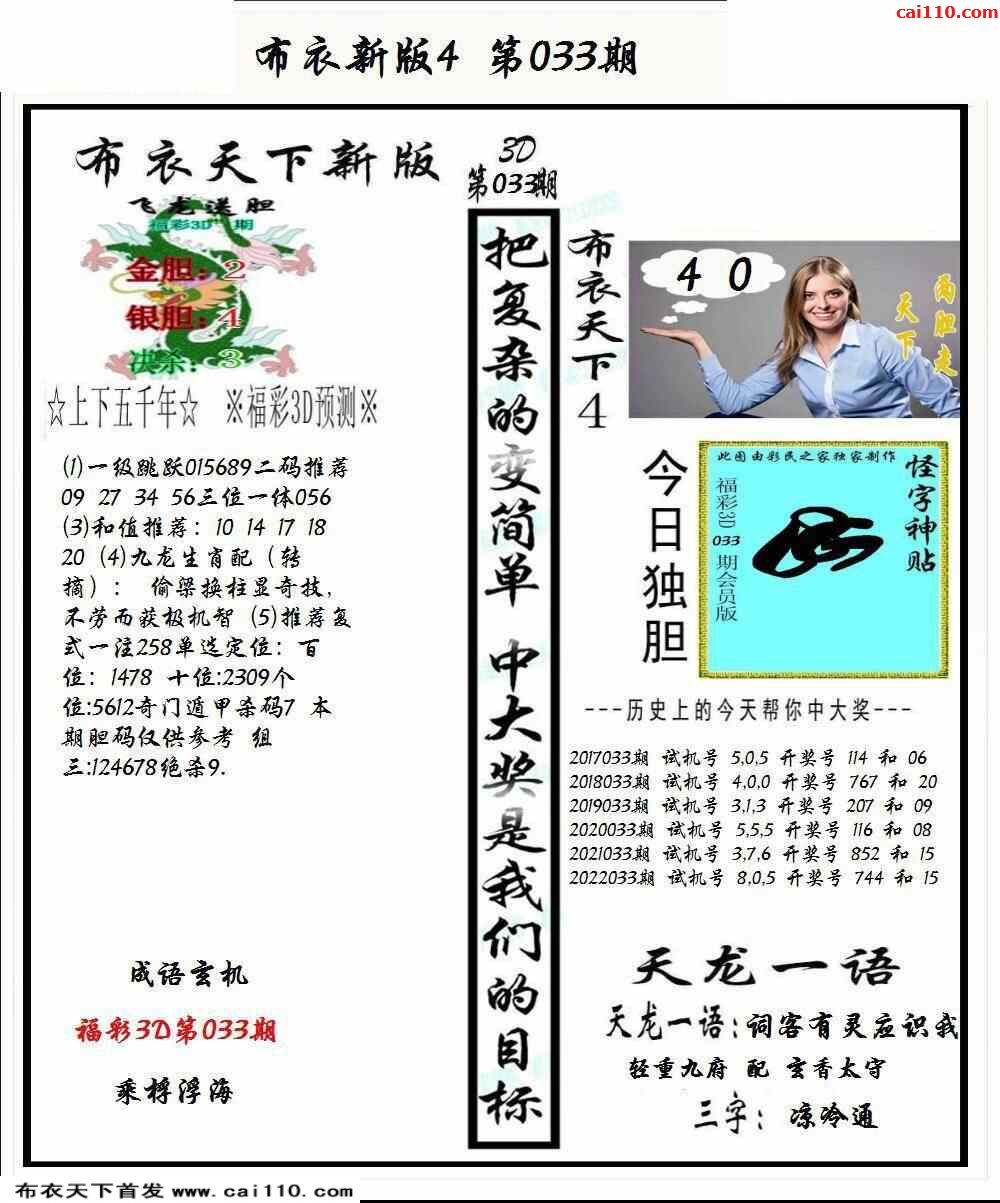 cai110.com
布衣新版4 第033期
布衣天下新版
飞龙送胆
福彩3D 期
金胆：2
银胆：4
决杀：3
☆上下五千年☆ ※福彩3D预测※
(1)一级跳跃015689二码推荐
09 27 34 56三位一体056
(3)和值推荐：10 14 17 18
20 (4)九龙生肖配（转
摘）： 偷梁换柱显奇技,
不劳而获极机智 (5)推荐复
式一注258单选定位：百
位：1478 十位:2309个
位:5612奇门遁甲杀码7 本
期胆码仅供参考 组
三:124678绝杀9.
成语玄机
福彩3D第033期
乘桴浮海
3D
第033期
把复杂的变简单 中大奖是我们的目标
布衣天下4
4 0
两胆走
天下
今日独胆
此图由彩民之家独家制作
怪字神贴
福彩3D 033 期会员版
---历史上的今天帮你中大奖---
2017033期 试机号 5,0,5 开奖号 114 和 06
2018033期 试机号 4,0,0 开奖号 767 和 20
2019033期 试机号 3,1,3 开奖号 207 和 09
2020033期 试机号 5,5,5 开奖号 116 和 08
2021033期 试机号 3,7,6 开奖号 852 和 15
2022033期 试机号 8,0,5 开奖号 744 和 15
天龙一语
天龙一语:词客有灵应识我
轻重九府 配 玄香太守
三字： 凉冷通
布衣天下首发 www.cai110.com